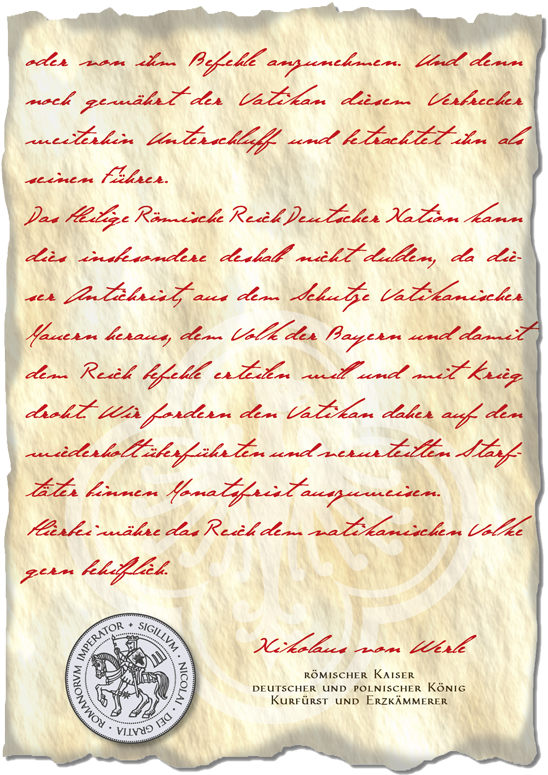 oder von ihm Befehle anzunehmen. Und denn
noch gewährt der Vatikan diesem Verbrecher
weiterhin Unterschluff und betrachtet ihn als
seinen Führer.
Das Heilige Römische Reich Deutscher Nation kann
dies insbesondere deshalb nicht dulden, da die-
ser Antichrist, aus dem Schutze Vatikanischer
Mauern heraus, dem Volk der Bayern und damit
dem Reich befehle erteilen will und mit Krieg
droht. Wir fordern den Vatikan daher auf den
wiederholt überführten und verurteilten Starf-
täter binnen Monatsfrist auszuweisen.
Hierbei währe das Reich dem vatikanischen Volke
gern behilflich.
Nikolaus von Werle
römischer Kaiser
deutscher und polnischer König
Kurfürst und Erzkämmerer
ROMANORVM IMPERATOR + SIGILLVM · NICOLAI · DEI GRATIA ·